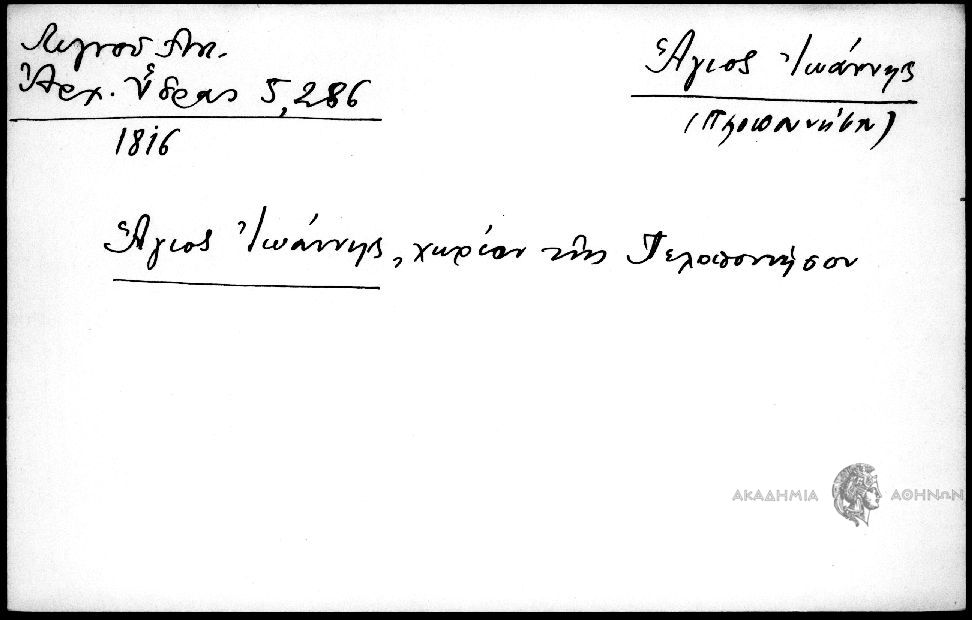 Λιγνού Ἀν.
Ἀρχ. Ὕδρας 5,286
1816
Ἅγιος Ἰωάννης
(Πελοποννήσου)
Ἅγιος Ἰωάννης, χωρίον τῆς Πελοποννήσου
ΑΚΑΔΗΜΙΑ ΑΘΗΝΩΝ